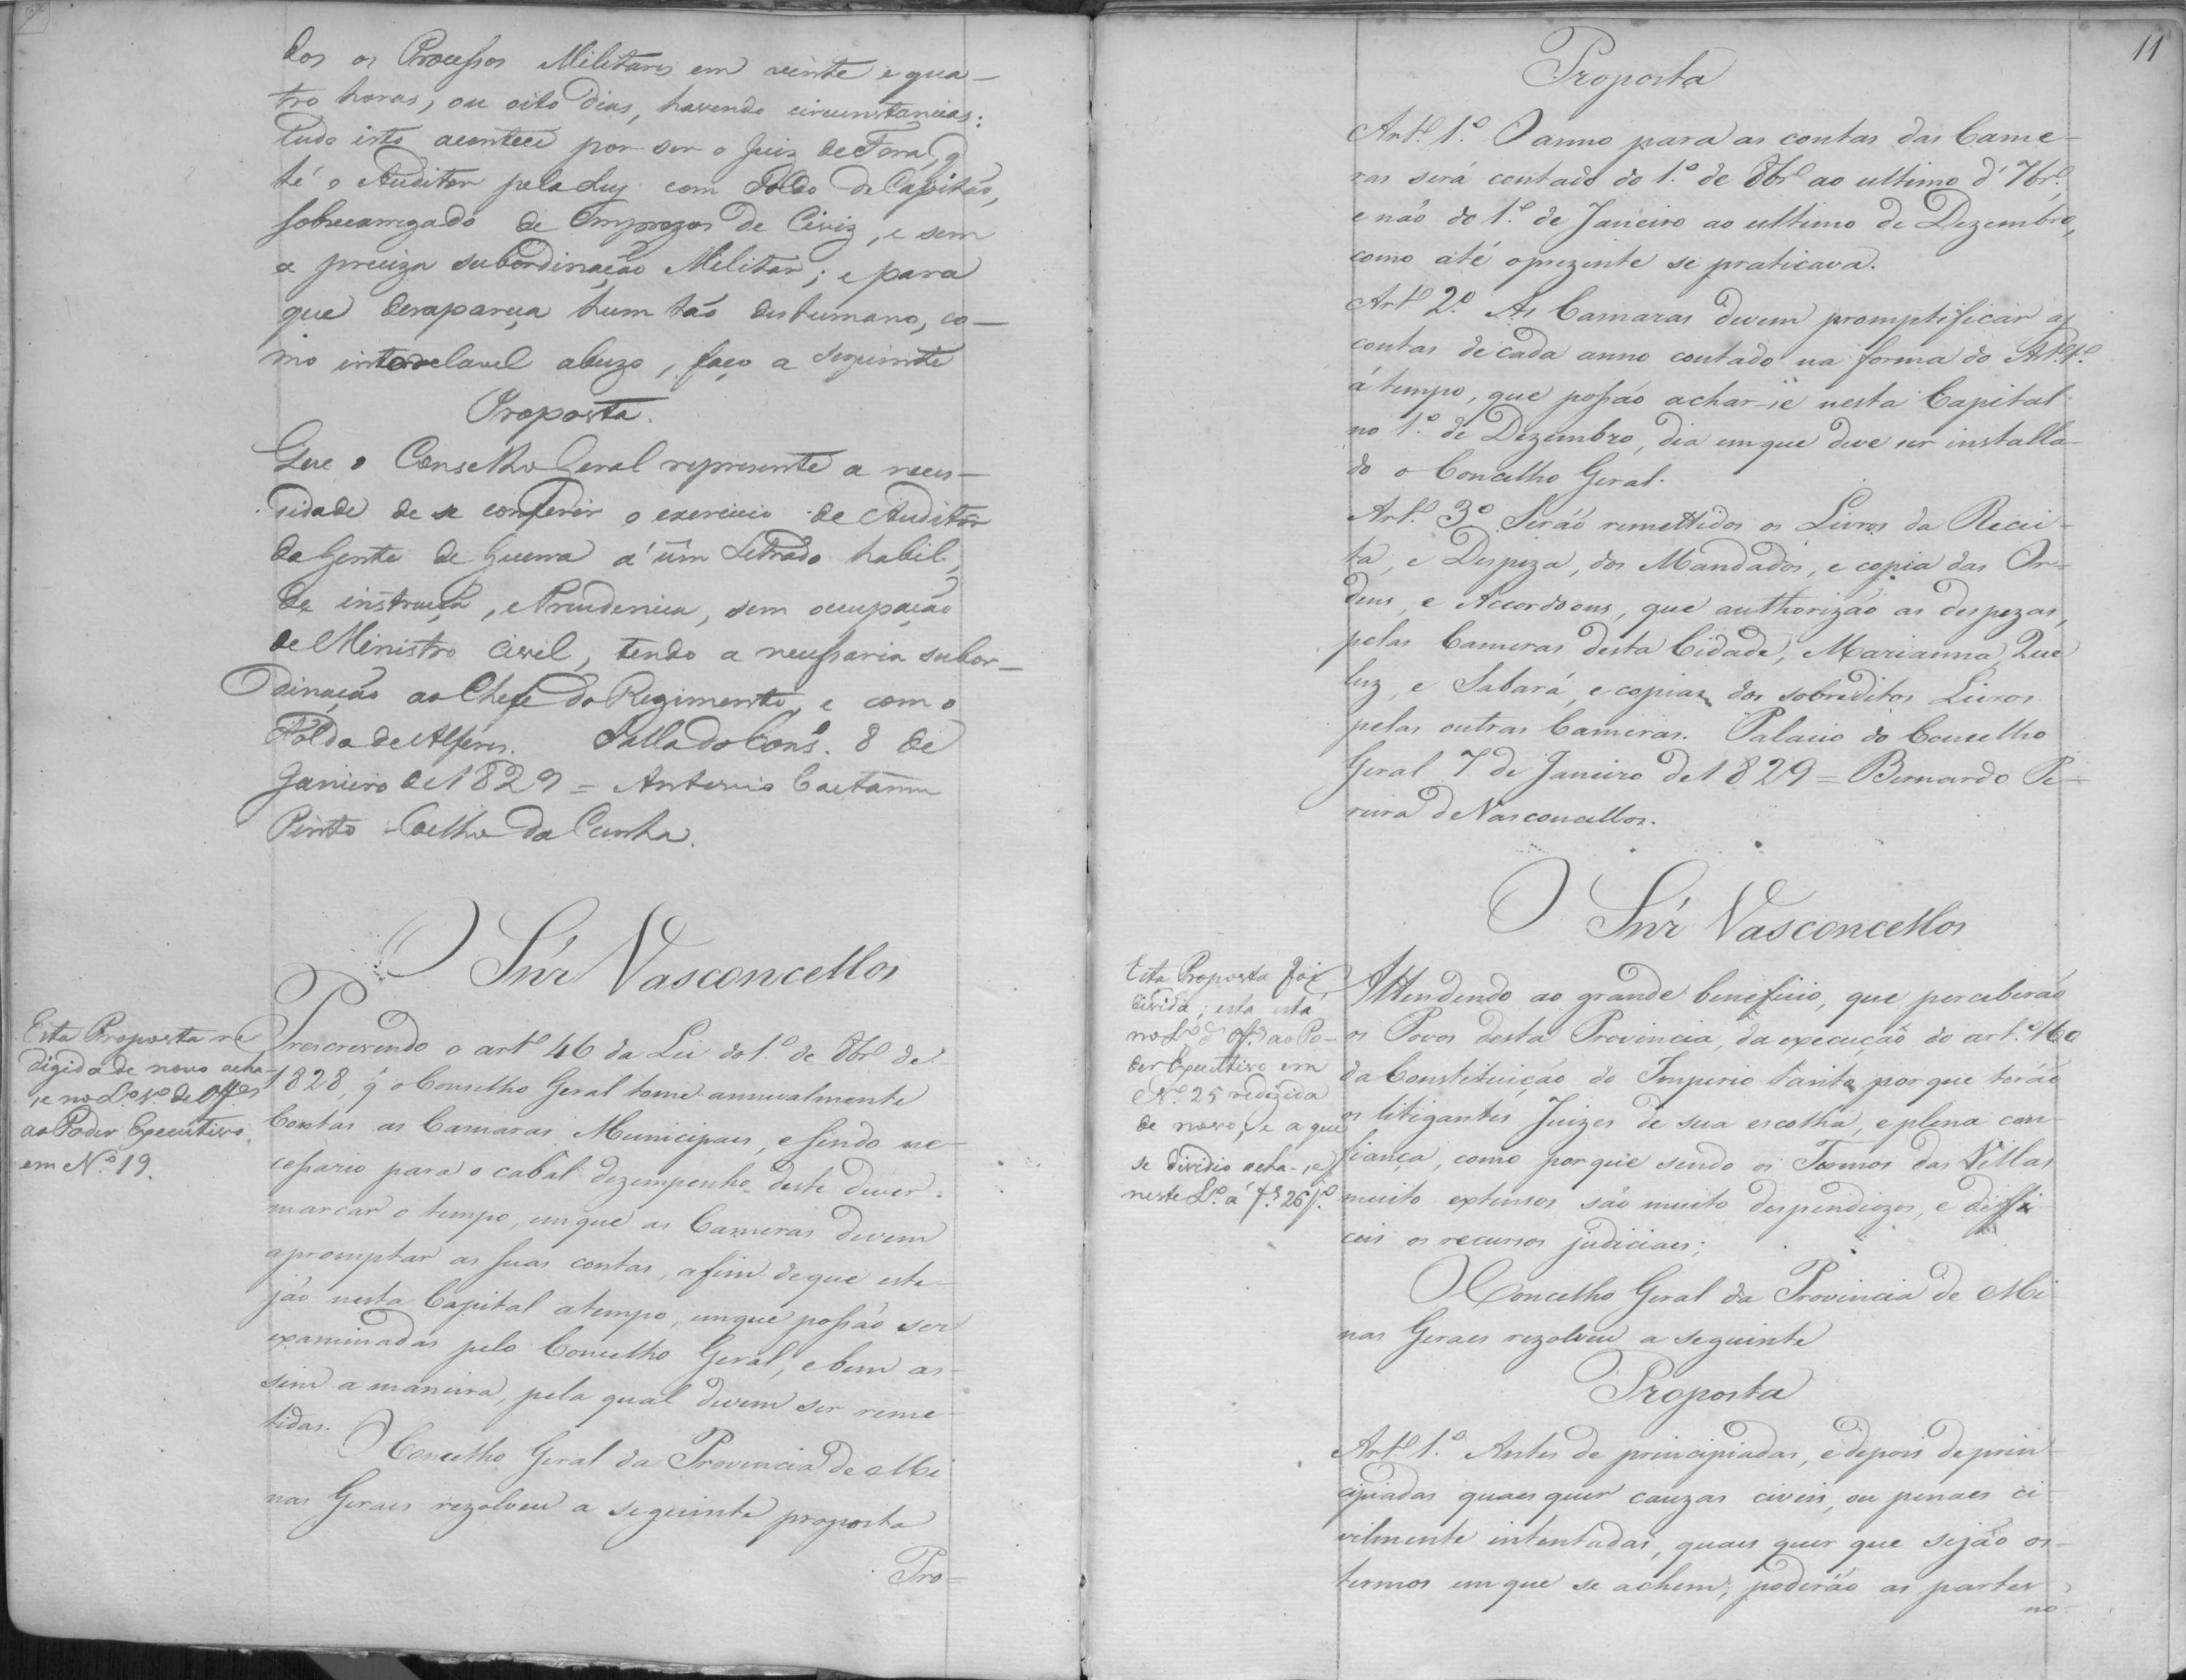 dos os Processos Militares em vinte e qua-
tro horas, ou oito dias, havendo circunstancias:
tudo isto acontece por ser o Juiz de Fora, q
té o Auditor pela Ley com Soldo de Capitão,
sobrecarregado de Empregos de Civiz, e sem
a preciza subordinação Militar; e para
que desapareça hum tão deshumano, co-
mo intoleravel abuzo, faço a seguinte
Proposta.
Que o Conselho Geral represente a neces-
sidade de se conferir o exercicio de Auditor
da Gente de Guerra a' um Letrado habil,
de instrucção, e Prudencia, sem occupação
de Ministro Civil, tendo a necessaria subor-
dinação ao Chefe do Regimento, e com o
Soldo de Alferes. Salla do Cons.º 8 de
Janeiro de 1829 = Antonio Caetanno
Pinto Coelho da Cunha.
O Snr Vasconcellos
Esta Proposta re
digida de novo acha-
se no L.º 1.º de Off.es
ao Poder Executivo
em N.º 19.
Prescrevendo o art.º 46 da Lei do 1.º de 8br.º de
1828, q̃ o Conselho Geral tome annualmente
Contas as Camaras Municipaes, e sendo ne-
cessario para o cabal dezempenho deste dever
marcar o tempo, em que as Cameras devem
apromptar as suas contas, afim de que este-
jão nesta Capital a tempo, em que possão ser
examinadas pelo Concelho Geral, e bem as-
sim a maneira, pela qual devem ser reme-
tidas.
O Concelho Geral da Provincia de Mi
nas Geraes rezolveu a seguinte proposta
Pro=
11
Proposta
Art.º 1.º O anno para as contas das Came-
ras será contado do 1.º de 8br.º ao ultimo d' 7br.º,
e não do 1.º de Janeiro ao ultimo de Dezembro,
como até o prezente se praticava.
Art.º 2.º As Camaras devem promptificar as
contas de cada anno contado na forma do Art.º 1.º
á tempo, que possão achar-se nesta Capital
no 1.º de Dezembro, dia em que deve ser installa-
do o Concelho Geral.
Art.º 3.º Serão remettidos os Livros da Recei-
ta, e Despeza, dos Mandados, e copia das Or=
dens, e Accordoons, que authorizão as despezas,
pelas Cameras desta Cidade, Marianna, Que
luz, e Sabará, e copias dos sobreditos Livros
pelas outras Cameras. Palacio do Concelho
Geral 7 de Janeiro de 1829 = Bernardo Pe-
reira de Vasconcellos.
O Snr Vasconcellos
Esta Proposta foi
divida; esta está
no L.º d' Off.es ao Po-
der Executivo em
N.º 25 redigida
de novo, e a que
se dividio acha-se
neste L.º a' f.s 26 v.º
Attendendo ao grande beneficio, que perceberão
os Povos desta Provincia, da execução do art.º 160
da Constituição do Imperio tanto porque terão
os litigantes Juizes de sua escolha, e plena con
fiança, como porque sendo os Termos das Villas
muito extensos são muito despendiozos, e diffi
ceis os recursos judiciaes;
O Concelho Geral da Provincia de Mi
nas Geraes rezolveu a seguinte
Proposta
Art.º 1.º Antes de principiadas, e depois de prin
cipiadas quaes quer cauzas civeis, ou penaes ci
vilmente intentadas, quaes quer que sejão os
termos em que se achem, poderão as partes
no